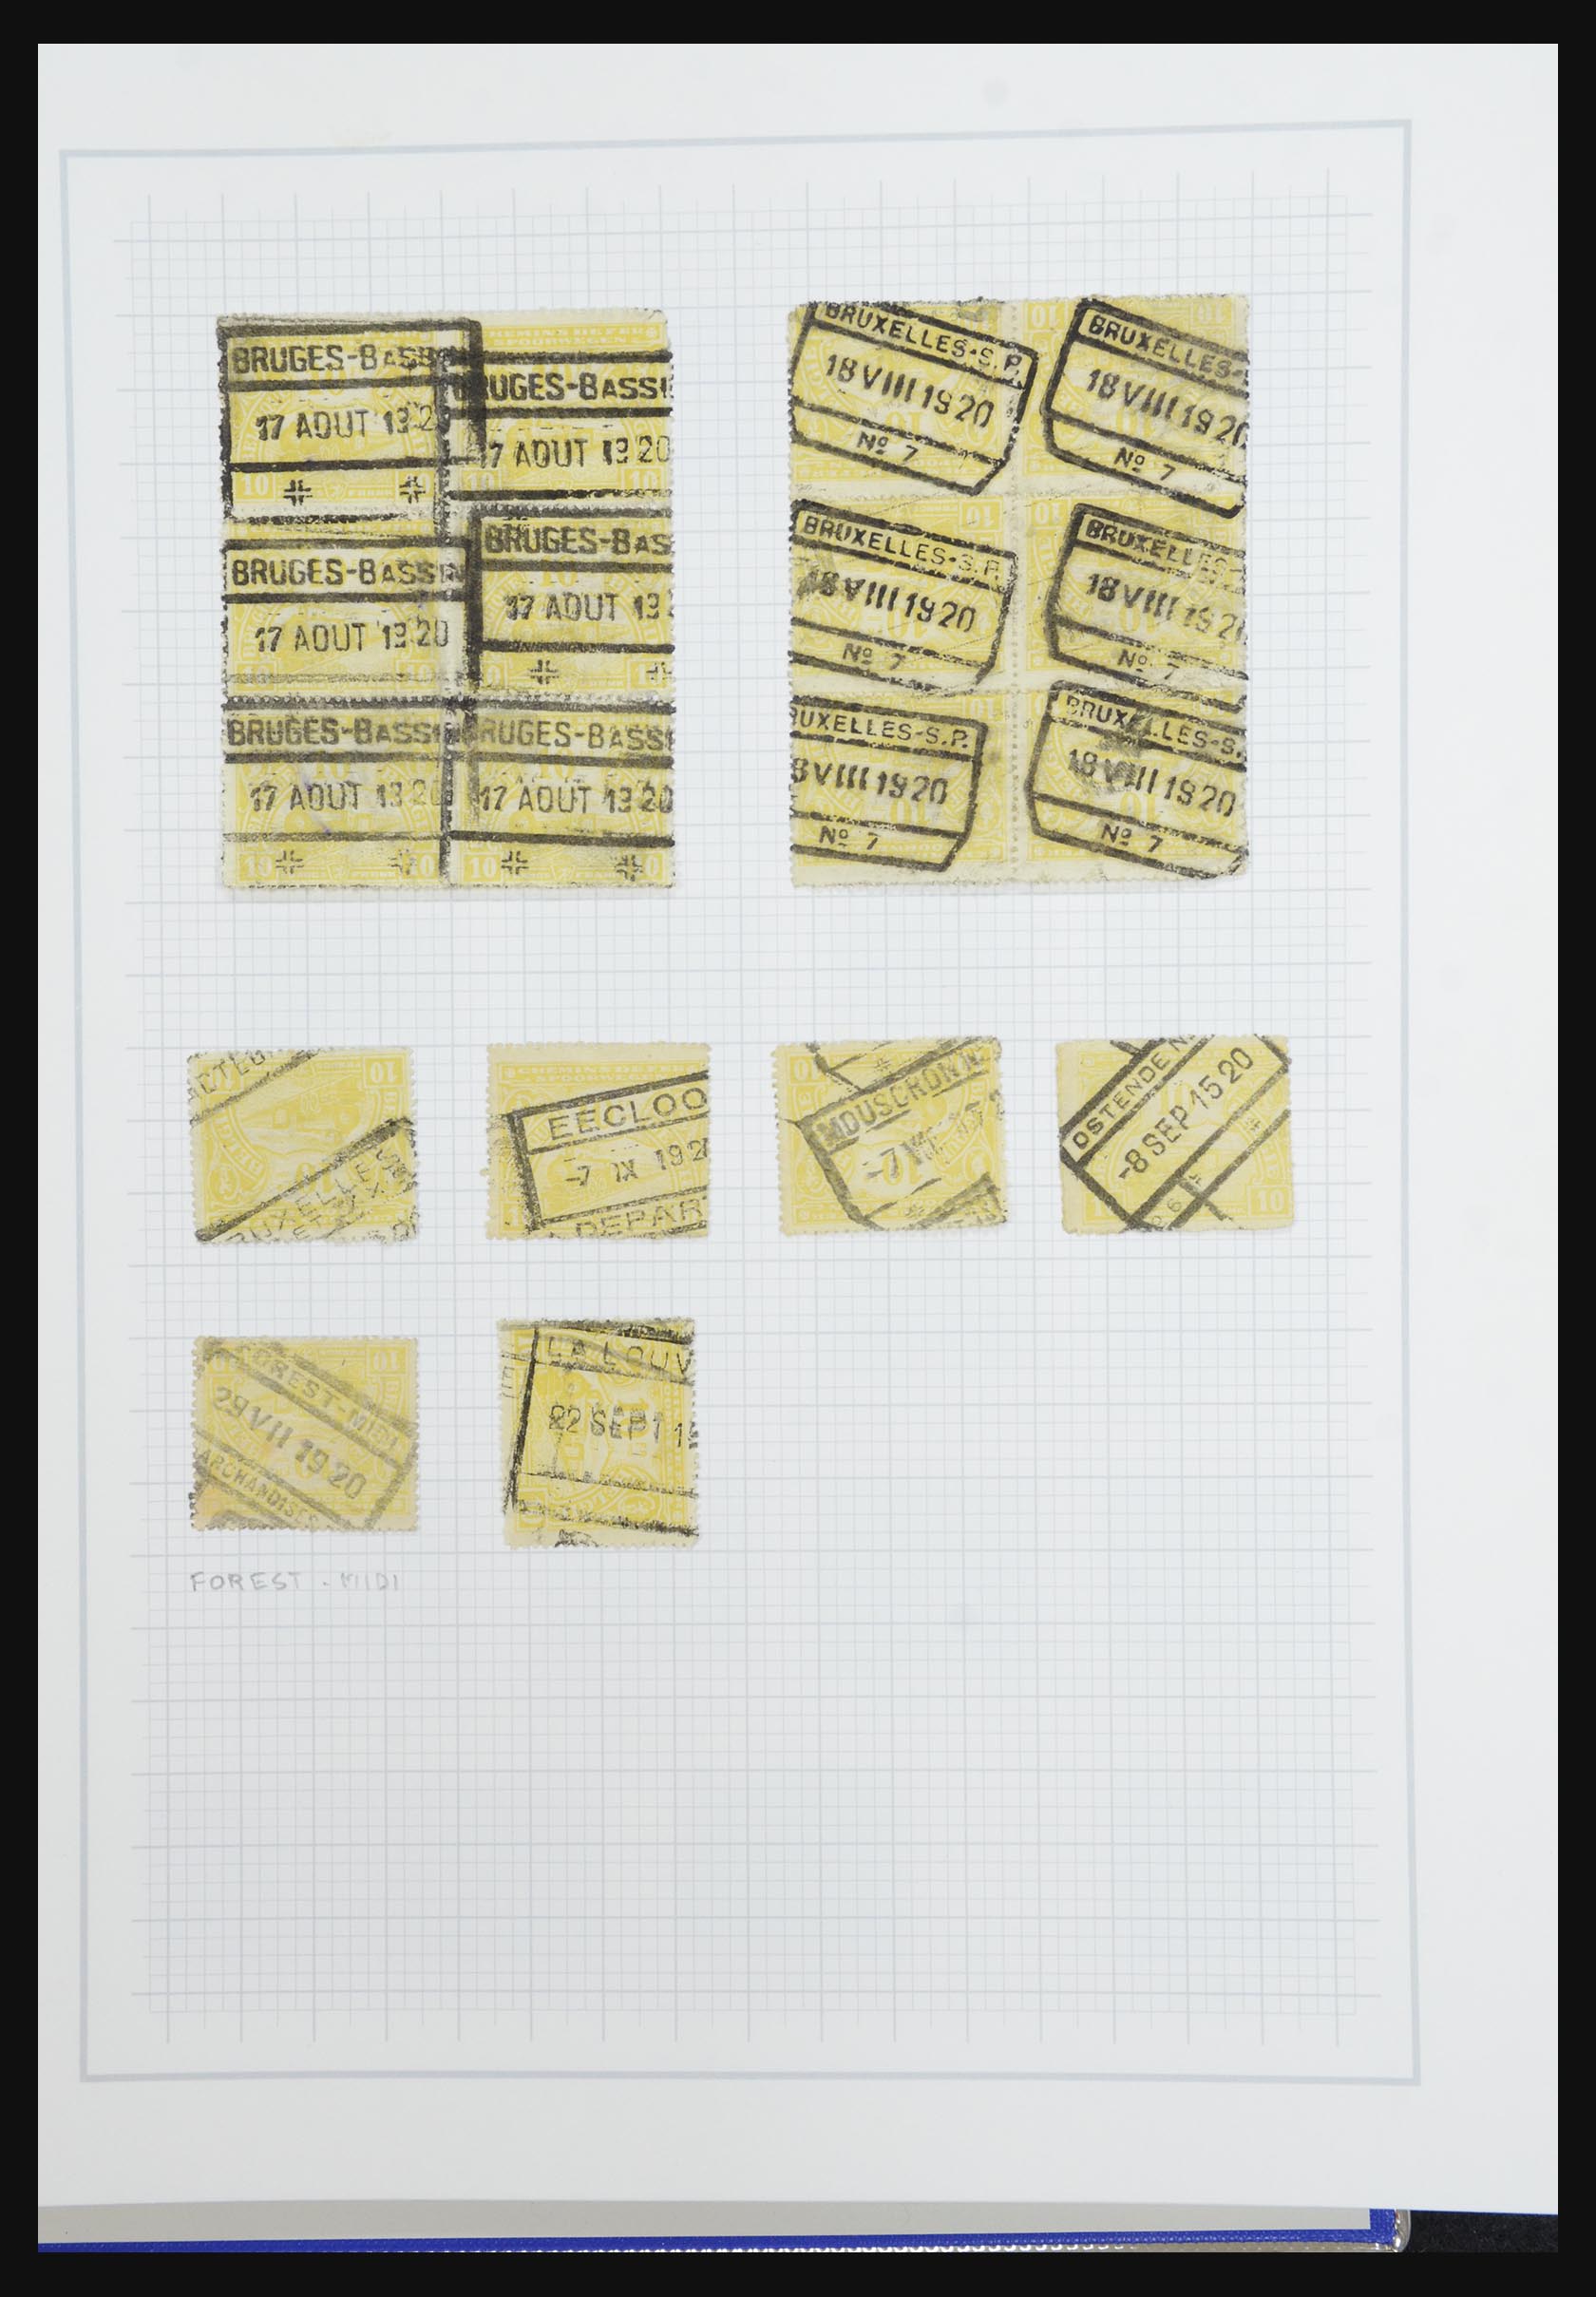 BRUGES-BASS
17 AOUT 192
CHEMINS DE FER
SPOORWEGEN
RUGES-BASSI
17 AOUT 1920
10
10 10
BRUGES-BASSIN
17 AOUT 1920
BRUGES-BAS
17 AOUT 19
BRUGES-BASSI
17 AOUT 1920
10 10
RUGES-BASSI
17 AOUT 1920
10 10
BRUXELLES-S.P.
18 VIII 1920
Nº 7
BRUXELLES-
18 VIII 1920
Nº 7
BRUXELLES-S.P.
18 VIII 1920
Nº 7
BRUXELLES-
18 VIII 192
Nº 7
RUXELLES-S.P.
8 VIII 1920
Nº 7
BRUXELLES-S.
18 VIII 1920
Nº 7
10
UXELLES
CHEMINS DE FER
SPOORWEGEN
EECLOO
-7 IX 192
DEPAR
10
MOUSCRON
-7
OSTENDE
-8 SEP 15 20
10
10
FOREST-MIDI
29 VII 1920
ARCHANDISES
LA LOUV
22 SEPT 1
FOREST - MIDI